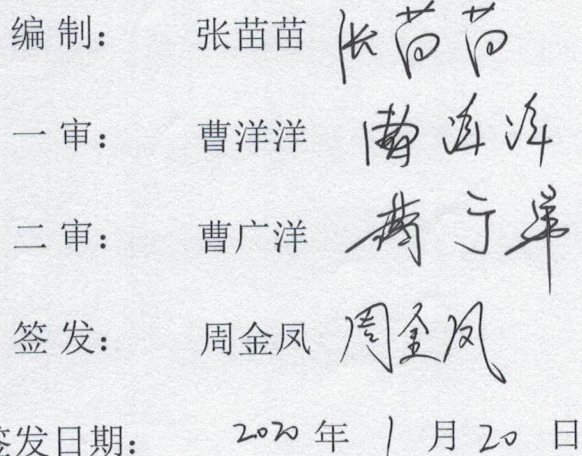 编制： 张苗苗 张苗苗
一审： 曹洋洋
二审： 曹广洋
签发： 周金凤 周金凤
签发日期： 2020年1月20日